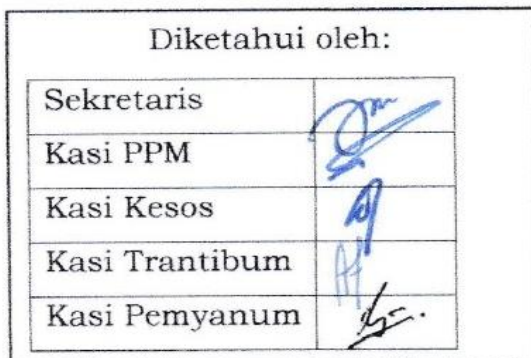 Diketahui oleh:
Sekretaris
Kasi PPM
Kasi Kesos
Kasi Trantibum
Kasi Pemyanum